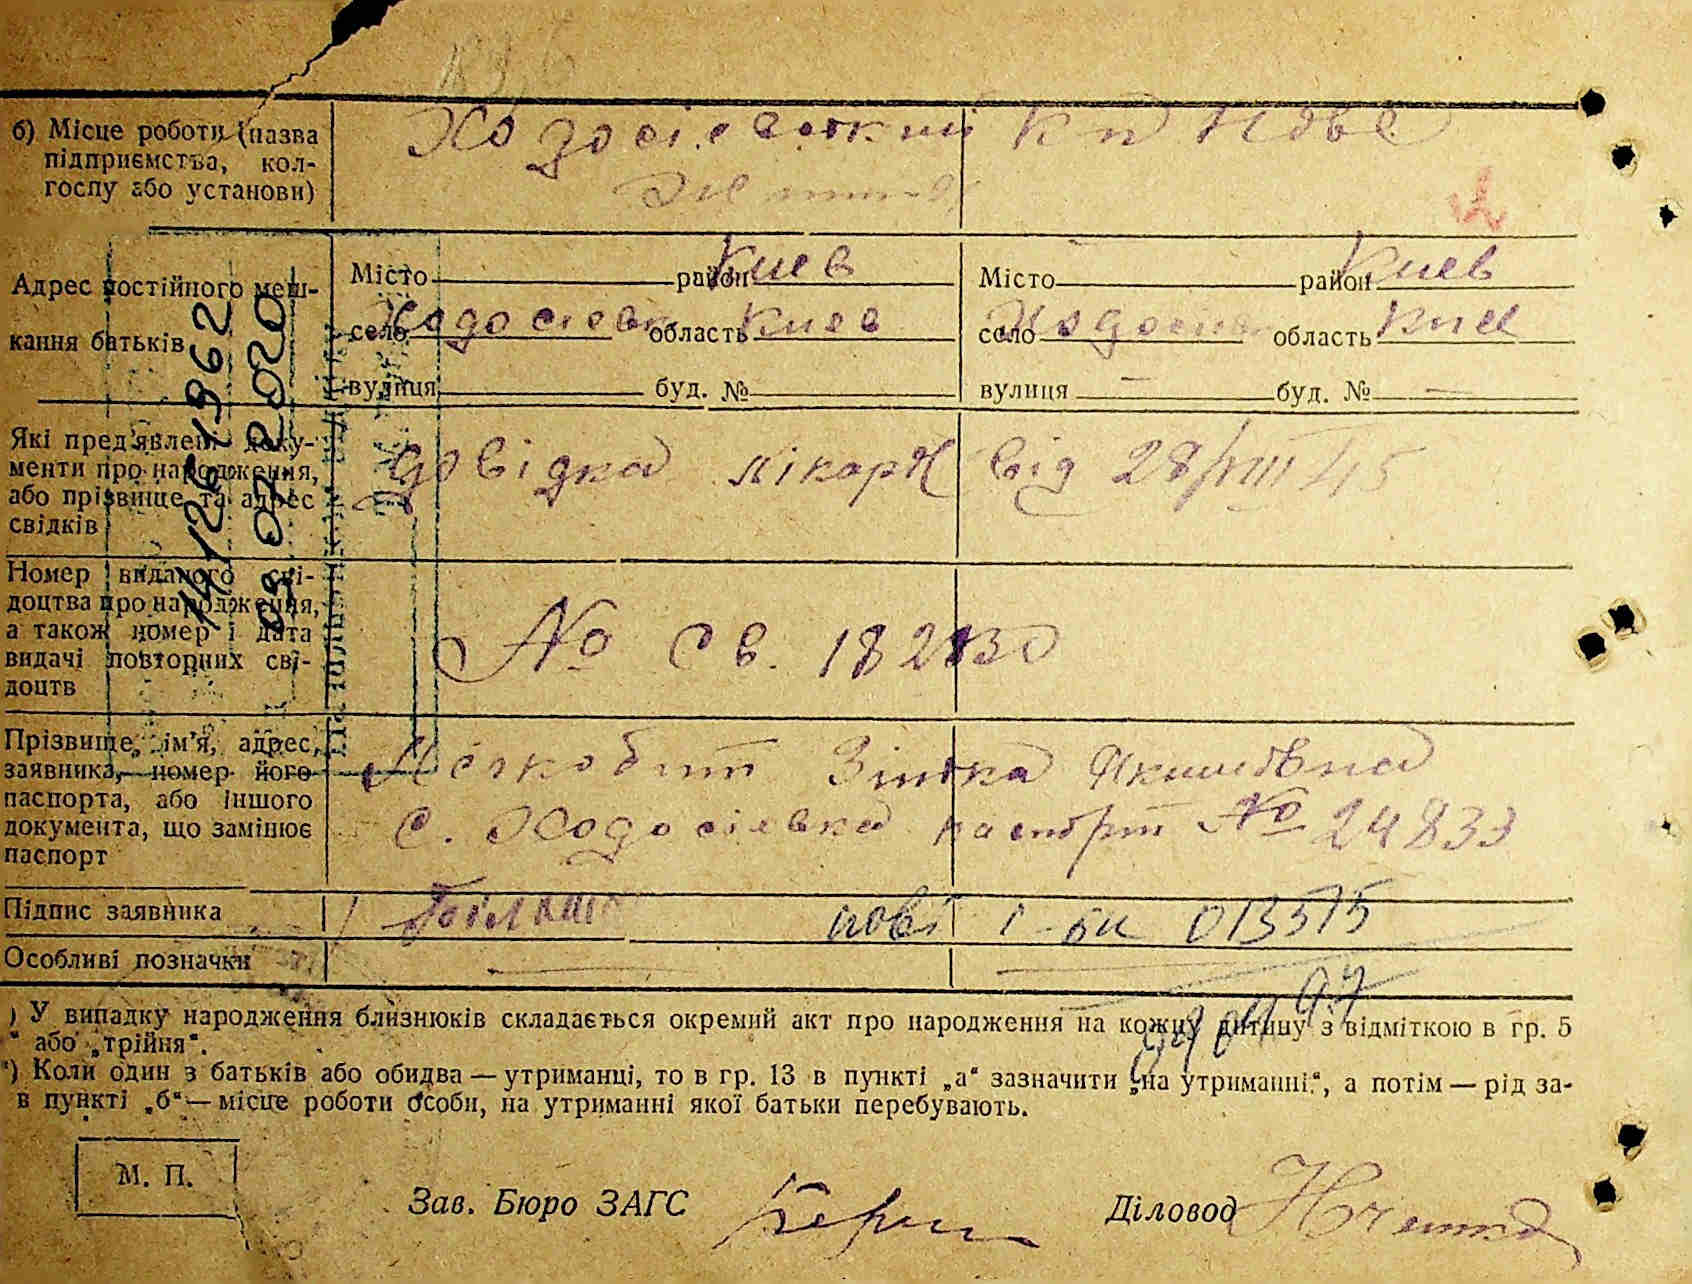 б) Місце роботи (назва
підприємства, кол-
госпу або установи)
Ходосієвский к п Нове
Життя
Адрес постійного меш-
кання батьків
Місто район Киев
село Ходосієвка область Киев
вулиця буд. №
Місто район Киев
село Ходосиев область Киев
вулиця — буд. № —
14/126 1962
09 07 2020
Які пред'явлені доку-
менти про народження,
або прізвище та адрес
свідків
Довідка лікарн від 28/VIII 45
Номер виданого сві-
доцтва про народження,
а також номер і дата
видачі повторних сві-
доцтв
№ св. 182830
Прізвище, ім'я, адрес,
заявника, номер його
паспорта, або іншого
документа, що замінює
паспорт
Легкобит Зінька Якимівна
с. Ходосієвка паспорт № 24833
Підпис заявника
нові І-бк 013575
Особливі позначки
) У випадку народження близнюків складається окремий акт про народження на кожну дитину з відміткою в гр. 5
" або „трійня".
) Коли один з батьків або обидва — утриманці, то в гр. 13 в пункті „а" зазначити „на утриманні", а потім — рід за-
в пункті „б" — місце роботи особи, на утриманні якої батьки перебувають.
М. П.
Зав. Бюро ЗАГС
Діловод